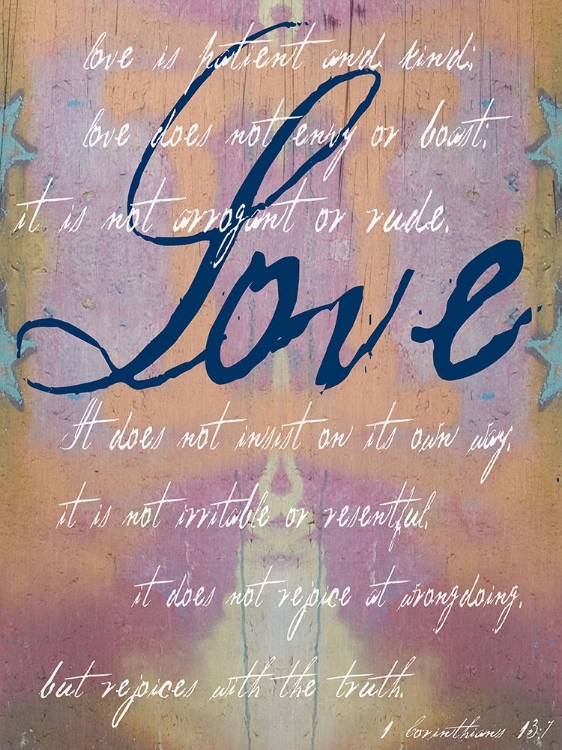 love is patient and kind;
love does not envy or boast;
it is not arrogant or rude.
Love
It does not insist on its own way,
it is not irritable or resentful,
it does not rejoice at wrongdoing,
but rejoices with the truth.
1 Corinthians 13:7